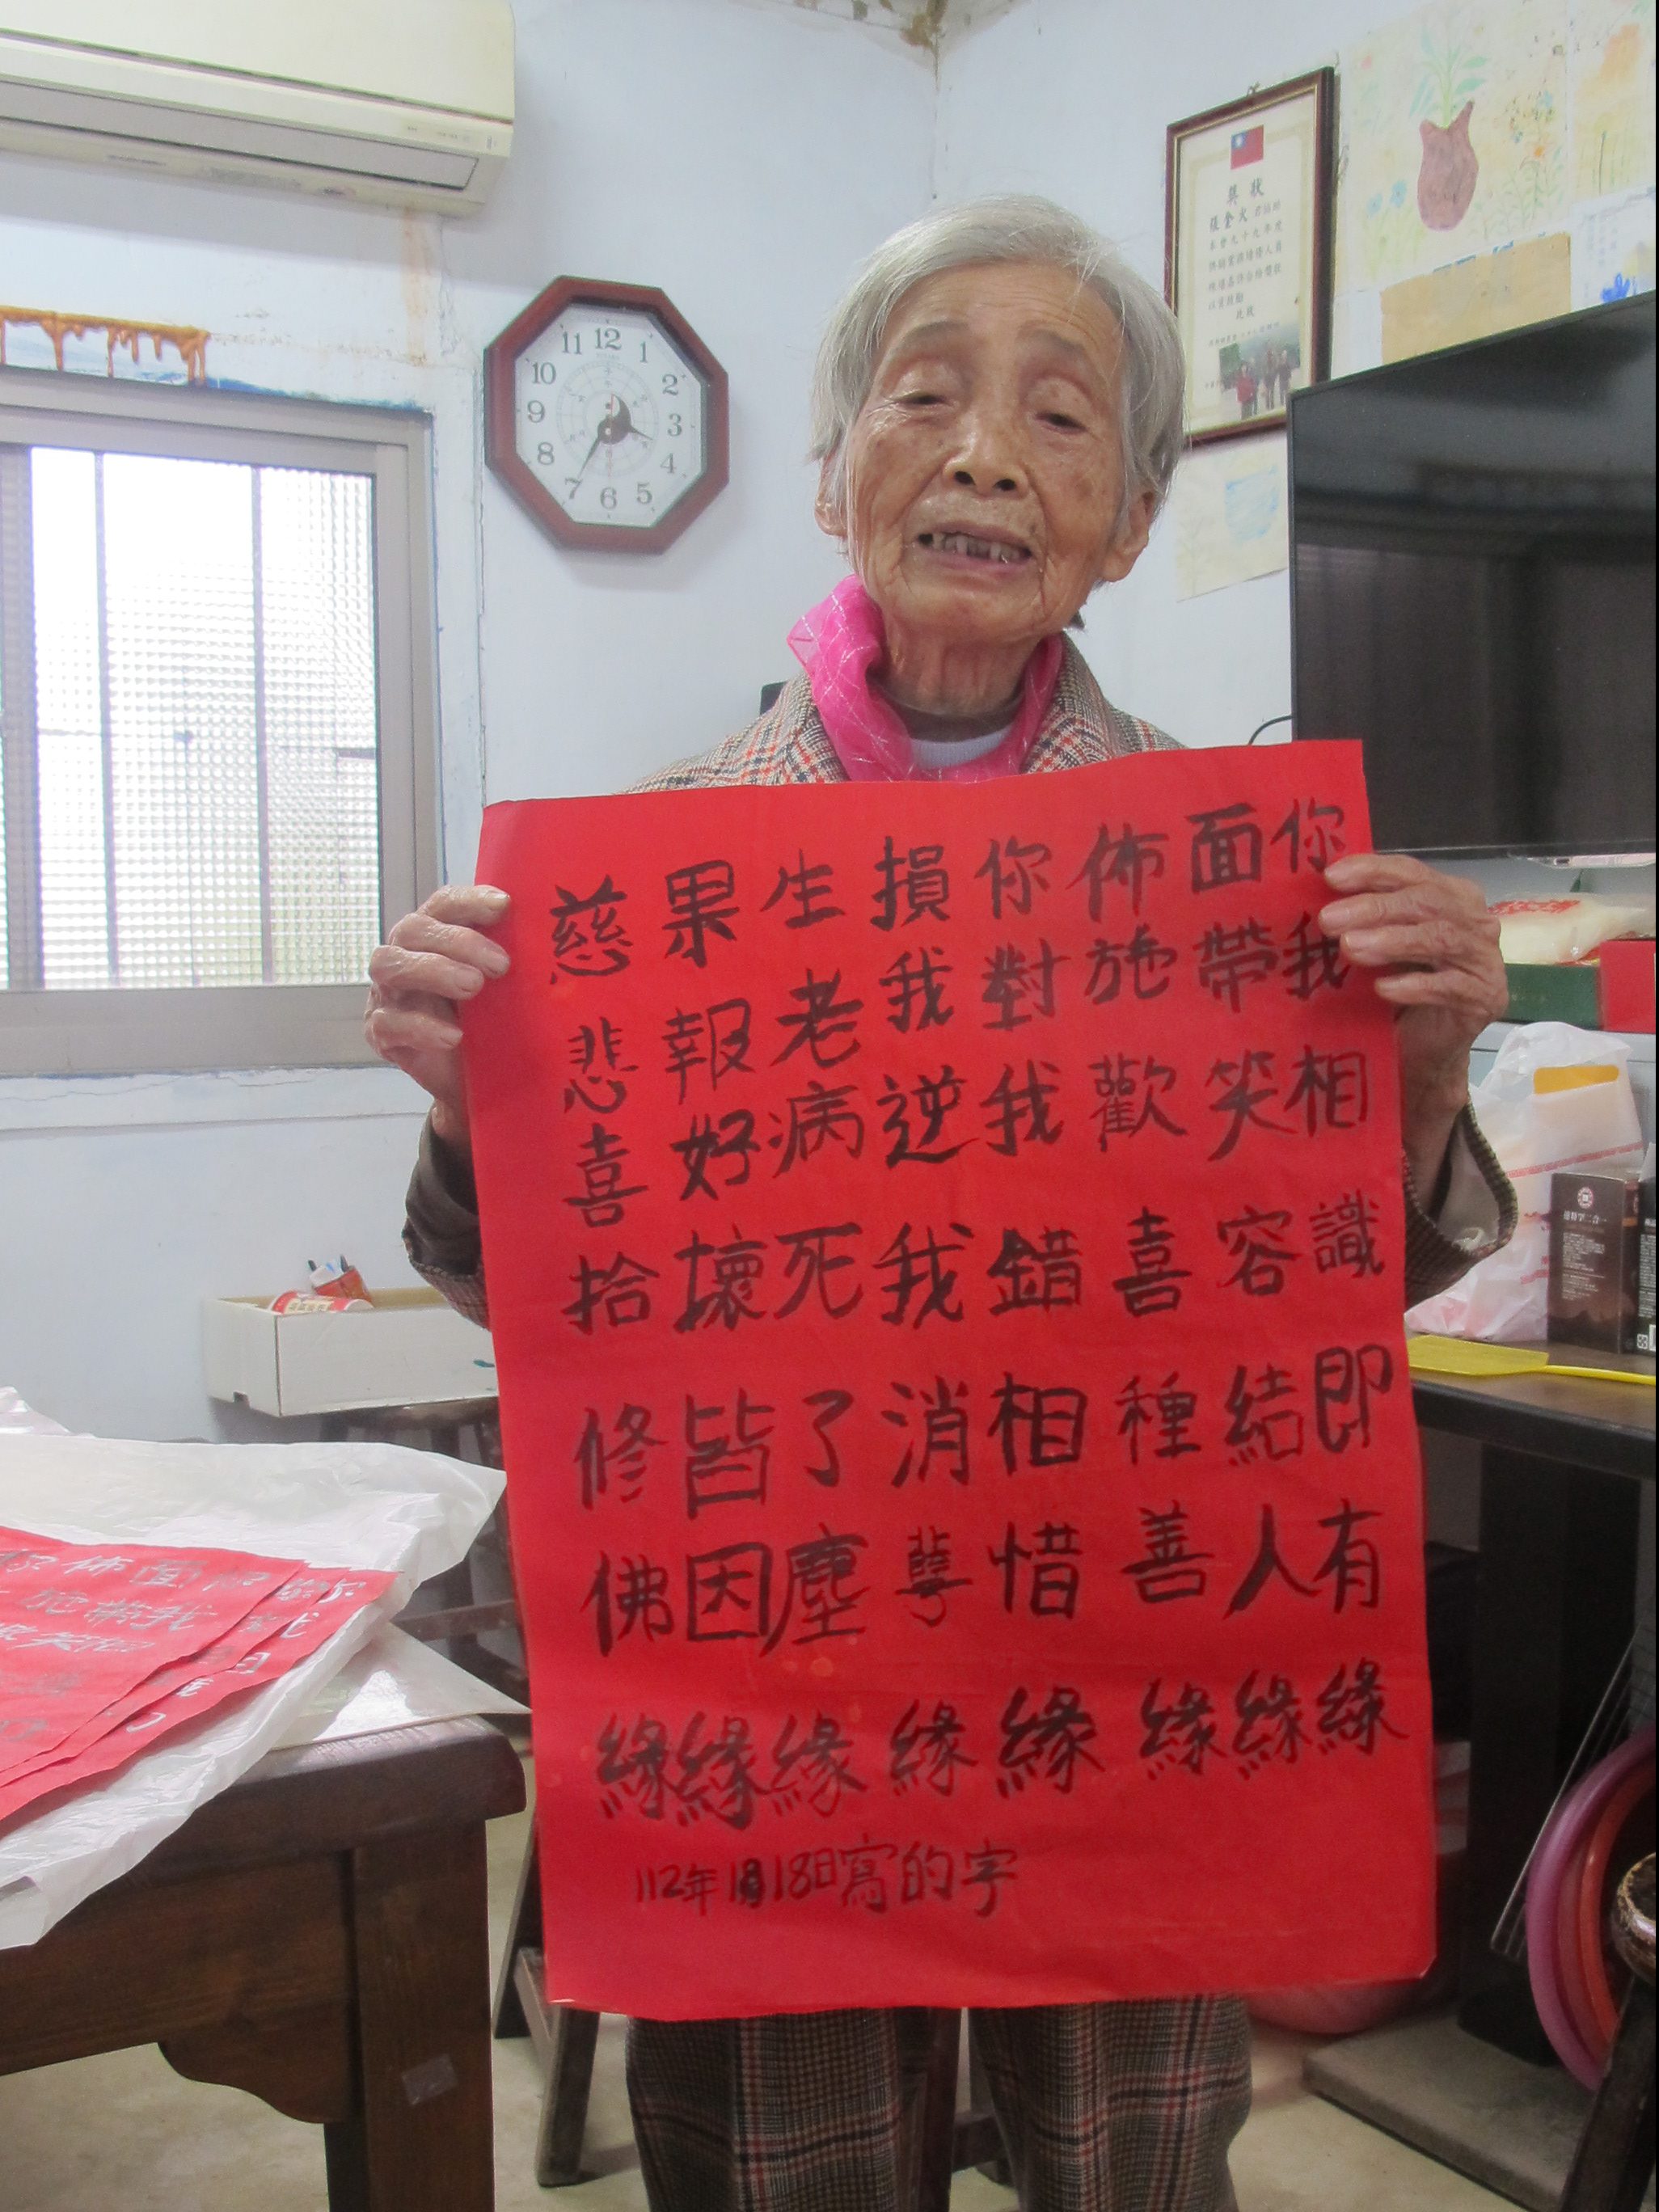 你我相識即有緣
面帶笑容結人緣
佈施歡喜種善緣
你對我錯相惜緣
損我逆我消孽緣
生老病死了塵緣
果報好壞皆因緣
慈悲喜拾修佛緣
112年1月18日寫的字
獎狀
張金火
此狀
11 12 1
10 2
9 3
8 4
7 6 5
佈面
施帶我
笑
你